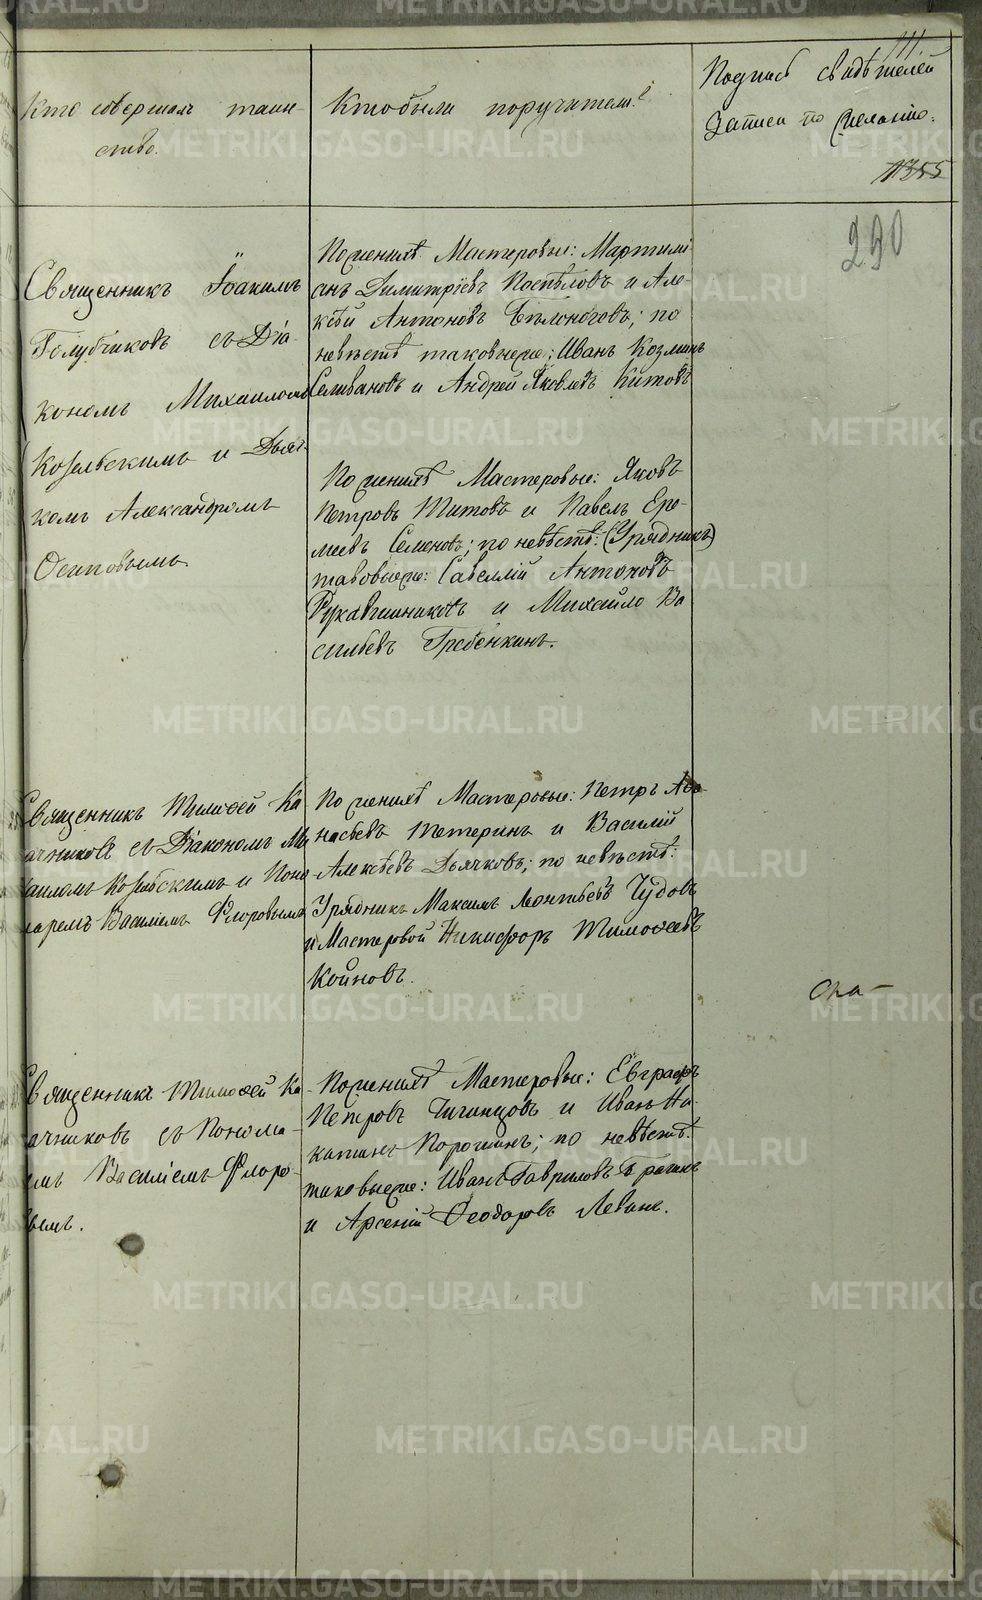 111.
Кто совершалъ таин-
ство.
Кто были поручители?
Подпись свидѣтелей
записи по желанію.
1355
290
Священникъ Іоакимъ
Голубчиковъ съ Діа-
кономъ Михаиломъ
Козельскимъ и Дьяч-
комъ Александромъ
Осиповымъ.
По женихѣ Мастеровые: Мартими-
анъ Димитріевъ Поспѣловъ и Але-
ксѣй Антоновъ Бѣлоноговъ; по
невѣстѣ таковыеже: Иванъ Козминъ
Селивановъ и Андрей Яковлевъ Китовъ
По женихѣ Мастеровые: Яковъ
Петровъ Титовъ и Павелъ Ере-
меевъ Семеновъ; по невѣстѣ: (Урядникъ)
таковыеже: Савеллій Антоновъ
Рукавишниковъ и Михайло Ва
сильевъ Гребенкинъ.
Священникъ Тимоѳей Ка
ачниковъ съ Діакономъ Ми
аиломъ Козельскимъ и Поно
аремъ Василіемъ Флоровымъ
По женихѣ Мастеровые: Петръ Аѳа-
насьевъ Тетеринъ и Василій
Алексѣевъ Дьячковъ; по невѣстѣ:
Урядникъ Максимъ Леонтьевъ Чудовъ
и Мастеровой Никифоръ Тимоѳеевъ
Койновъ.
Священникъ Тимоѳей Ка
ачниковъ съ Понома-
емъ Василіемъ Флоро-
вымъ.
По женихѣ Мастеровые: Евграфъ
Петровъ Чигинцовъ и Иванъ Ни-
китинъ Порошинъ; по невѣстѣ:
таковыеже: Иванъ Гавриловъ Брагинъ
и Арсеній Ѳеодоровъ Левинъ.
METRIKI.GASO-URAL.RU